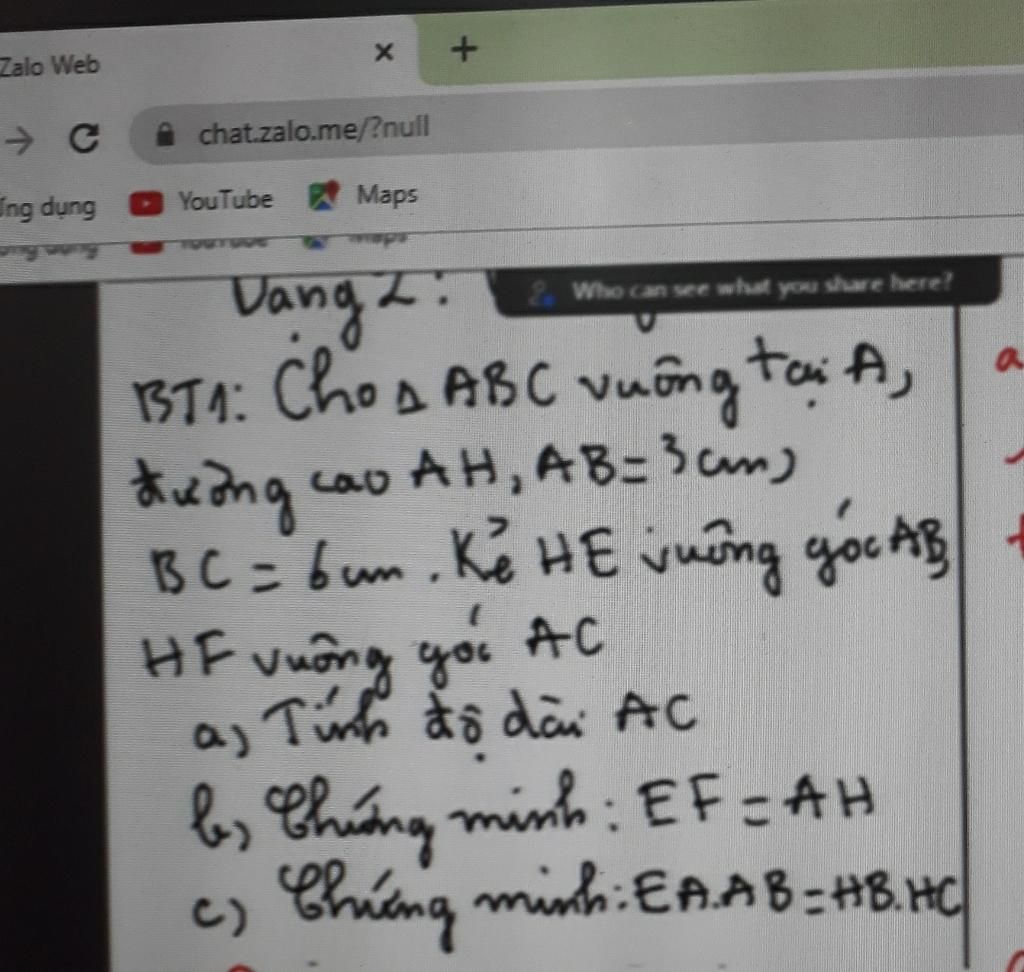 Zalo Web
chat.zalo.me/?null
Ứng dụng YouTube Maps
Dạng 2:
Who can see what you share here?
BT1: Cho Δ ABC vuông tại A,
đường cao AH, AB = 3 cm,
BC = 6 cm. Kẻ HE vuông góc AB,
HF vuông góc AC
a) Tính độ dài AC
b) Chứng minh: EF = AH
c) Chứng minh: EA.AB = HB.HC